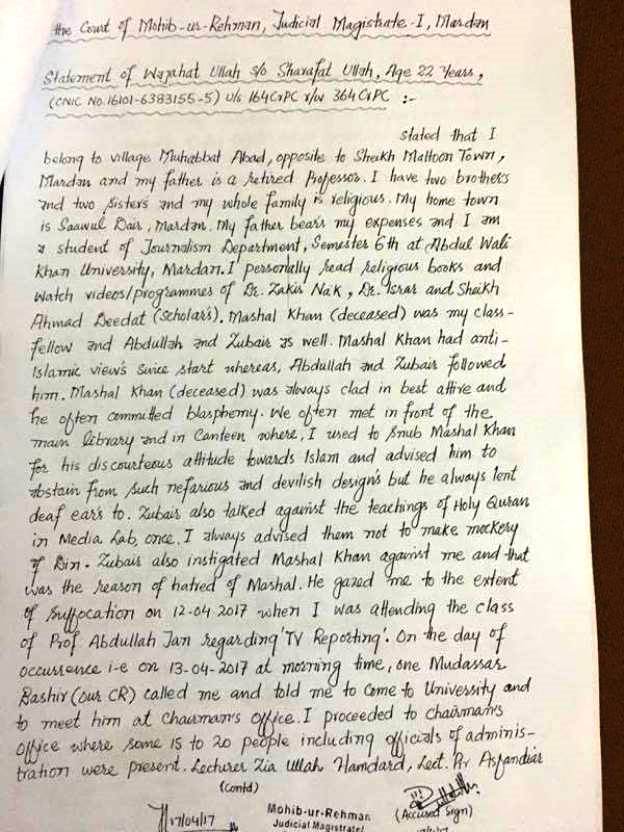 the Court of Mohib-ur-Rehman, Judicial Magistrate-I, Mardan
Statement of Wajahat Ullah S/o Sharafat Ullah, Age 22 Years,
(CNIC No. 16101-6383155-5) U/s 164 CrPC r/w 364 CrPC :-
Stated that I
belong to village Muhabbat Abad, opposite to Sheikh Maltoon Town,
Mardan and my father is a retired Professor. I have two brothers
and two sisters and my whole family is religious. My home town
is Saawul Dair, Mardan. My father bears my expenses and I am
a student of Journalism Department, Semester 6th at Abdul Wali
Khan University, Mardan. I personally read religious books and
watch videos/programmes of Dr. Zakir Naik, Dr. Israr and Sheikh
Ahmad Deedat (Scholars). Mashal Khan (deceased) was my class-
fellow and Abdullah and Zubair as well. Mashal Khan had anti-
Islamic views since start whereas, Abdullah and Zubair followed
him. Mashal Khan (deceased) was always clad in best attire and
he often committed blasphemy. We often met in front of the
main library and in Canteen where, I used to snub Mashal Khan
for his discourteous attitude towards Islam and advised him to
abstain from such nefarious and devilish designs but he always lent
deaf ears to. Zubair also talked against the teachings of Holy Quran
in Media Lab, once. I always advised them not to make mockery
of Din. Zubair also instigated Mashal Khan against me and that
was the reason of hatred of Mashal. He gazed me to the extent
of suffocation on 12-04-2017 when I was attending the class
of Prof Abdullah Jan regarding 'TV Reporting'. On the day of
occurrence i-e on 13-04-2017 at morning time, one Mudassar
Bashir (our CR) called me and told me to come to University and
to meet him at Chairman's Office. I proceeded to chairman's
office where some 15 to 20 people including officials of adminis-
tration were present. Lecturer Zia Ullah Hamdard, Lect. Pir Asfandiar
(Contd)
17/04/17
Mohib-ur-Rehman
Judicial Magistrate
(Accused Sign)